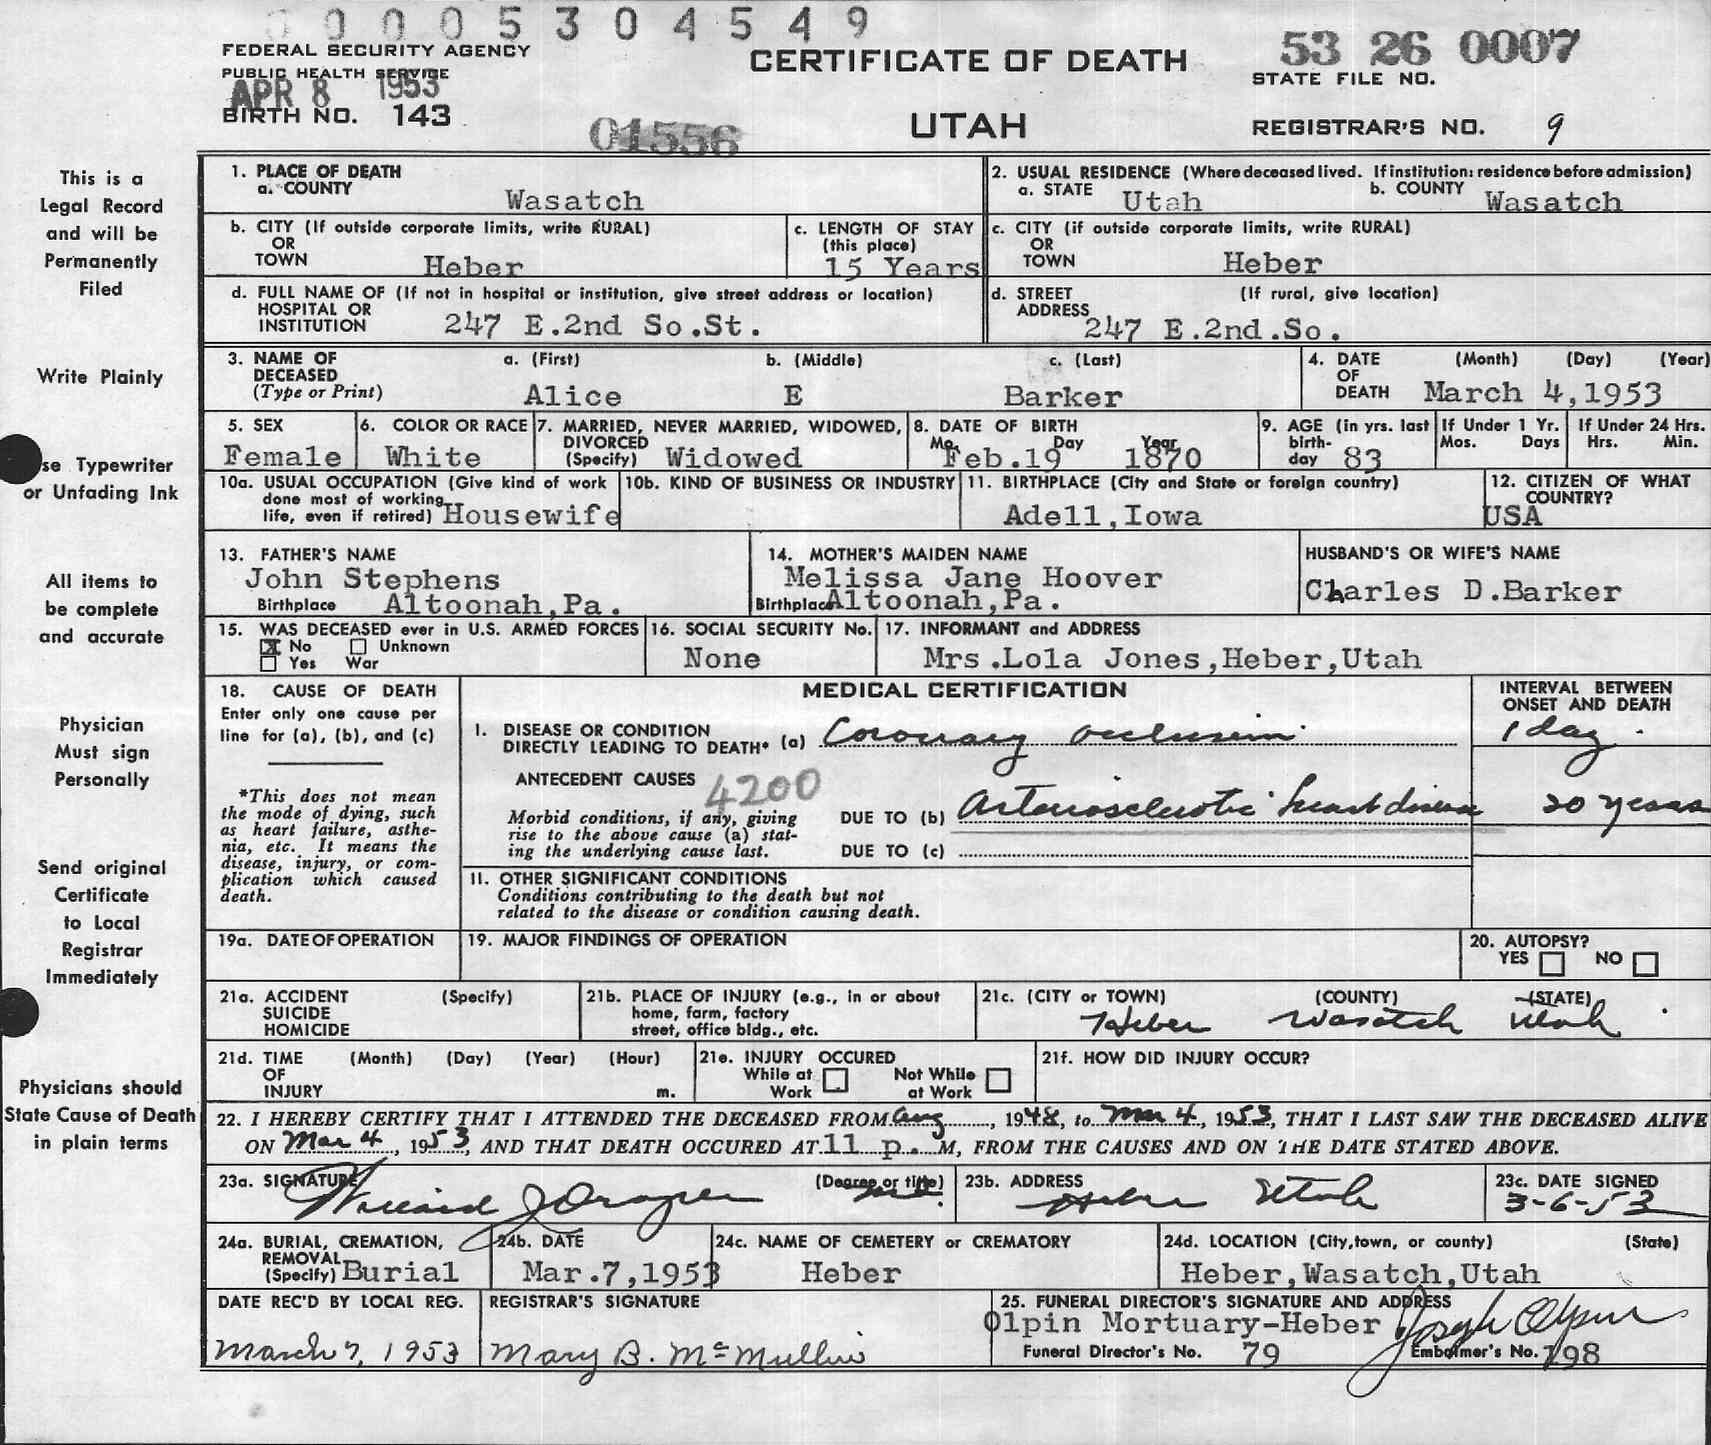 0 0 0 0 5 3 0 4 5 4 9
FEDERAL SECURITY AGENCY
PUBLIC HEALTH SERVICE
APR 8 1953
BIRTH NO. 143
01556
CERTIFICATE OF DEATH
UTAH
53 26 0007
STATE FILE NO.
REGISTRAR'S NO. 9
This is a
Legal Record
and will be
Permanently
Filed
Write Plainly
se Typewriter
or Unfading Ink
All items to
be complete
and accurate
Physician
Must sign
Personally
Send original
Certificate
to Local
Registrar
Immediately
Physicians should
State Cause of Death
in plain terms
1. PLACE OF DEATH
a. COUNTY Wasatch
2. USUAL RESIDENCE (Where deceased lived. If institution: residence before admission)
a. STATE Utah b. COUNTY Wasatch
b. CITY (If outside corporate limits, write RURAL)
OR
TOWN Heber
c. LENGTH OF STAY
(this place)
15 Years
c. CITY (if outside corporate limits, write RURAL)
OR
TOWN Heber
d. FULL NAME OF (If not in hospital or institution, give street address or location)
HOSPITAL OR
INSTITUTION 247 E.2nd So.St.
d. STREET (If rural, give location)
ADDRESS
247 E.2nd.So.
3. NAME OF a. (First) b. (Middle) c. (Last)
DECEASED
(Type or Print) Alice E Barker
4. DATE (Month) (Day) (Year)
OF
DEATH March 4,1953
5. SEX
Female
6. COLOR OR RACE
White
7. MARRIED, NEVER MARRIED, WIDOWED,
DIVORCED
(Specify) Widowed
8. DATE OF BIRTH
Mo. Day Year
Feb.19 1870
9. AGE (in yrs. last
birth-
day 83
If Under 1 Yr.
Mos. Days
If Under 24 Hrs.
Hrs. Min.
10a. USUAL OCCUPATION (Give kind of work
done most of working
life, even if retired) Housewife
10b. KIND OF BUSINESS OR INDUSTRY
11. BIRTHPLACE (City and State or foreign country)
Adell,Iowa
12. CITIZEN OF WHAT
COUNTRY?
USA
13. FATHER'S NAME
John Stephens
Birthplace Altoonah,Pa.
14. MOTHER'S MAIDEN NAME
Melissa Jane Hoover
Birthplace Altoonah,Pa.
HUSBAND'S OR WIFE'S NAME
Charles D.Barker
15. WAS DECEASED ever in U.S. ARMED FORCES
X No Unknown
Yes War
16. SOCIAL SECURITY No.
None
17. INFORMANT and ADDRESS
Mrs.Lola Jones,Heber,Utah
18. CAUSE OF DEATH
Enter only one cause per
line for (a), (b), and (c)
*This does not mean
the mode of dying, such
as heart failure, asthe-
nia, etc. It means the
disease, injury, or com-
plication which caused
death.
MEDICAL CERTIFICATION
INTERVAL BETWEEN
ONSET AND DEATH
I. DISEASE OR CONDITION
DIRECTLY LEADING TO DEATH* (a) Coronary occlusion 1 day.
ANTECEDENT CAUSES 4200
Morbid conditions, if any, giving
rise to the above cause (a) stat-
ing the underlying cause last.
DUE TO (b) Arteriosclerotic heart disease 20 years
DUE TO (c)
II. OTHER SIGNIFICANT CONDITIONS
Conditions contributing to the death but not
related to the disease or condition causing death.
19a. DATE OF OPERATION
19. MAJOR FINDINGS OF OPERATION
20. AUTOPSY?
YES NO
21a. ACCIDENT (Specify)
SUICIDE
HOMICIDE
21b. PLACE OF INJURY (e.g., in or about
home, farm, factory
street, office bldg., etc.
21c. (CITY or TOWN) (COUNTY) (STATE)
Heber Wasatch Utah
21d. TIME (Month) (Day) (Year) (Hour)
OF
INJURY m.
21e. INJURY OCCURED
While at Not While
Work at Work
21f. HOW DID INJURY OCCUR?
22. I HEREBY CERTIFY THAT I ATTENDED THE DECEASED FROM Aug, 1948, to Mar 4, 1953, THAT I LAST SAW THE DECEASED ALIVE
ON Mar 4, 1953, AND THAT DEATH OCCURED AT 11 p. M, FROM THE CAUSES AND ON THE DATE STATED ABOVE.
23a. SIGNATURE (Degree or title)
Willard J Draper MD.
23b. ADDRESS
Heber Utah
23c. DATE SIGNED
3-6-53
24a. BURIAL, CREMATION,
REMOVAL
(Specify) Burial
24b. DATE
Mar.7,1953
24c. NAME OF CEMETERY or CREMATORY
Heber
24d. LOCATION (City,town, or county) (State)
Heber,Wasatch,Utah
DATE REC'D BY LOCAL REG.
March 7, 1953
REGISTRAR'S SIGNATURE
Mary B. McMullin
25. FUNERAL DIRECTOR'S SIGNATURE AND ADDRESS
Olpin Mortuary-Heber Joseph Olpin
Funeral Director's No. 79 Embalmer's No. 198